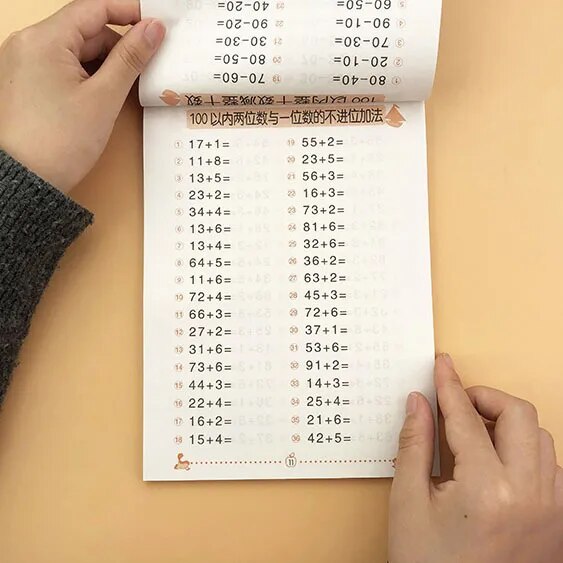 ① 80-40=
② 20-10=
③ 70-30=
④ 90-10=
⑤ 60-50=
⑲ 70-60=
⑳ 80-50=
㉑ 30-30=
㉒ 90-20=
㉓ 40-20=
100以内整十数减整十数
100以内两位数与一位数的不进位加法
① 17+1=
② 11+8=
③ 13+5=
④ 23+2=
⑤ 34+4=
⑥ 13+6=
⑦ 13+4=
⑧ 64+5=
⑨ 11+6=
⑩ 72+4=
⑪ 66+3=
⑫ 27+2=
⑬ 31+6=
⑭ 73+6=
⑮ 44+3=
⑯ 22+4=
⑰ 16+2=
⑱ 15+4=
⑲ 55+2=
⑳ 23+5=
㉑ 56+3=
㉒ 16+3=
㉓ 73+2=
㉔ 81+6=
㉕ 32+6=
㉖ 36+2=
㉗ 63+2=
㉘ 45+3=
㉙ 72+6=
㉚ 37+1=
㉛ 53+6=
㉜ 91+2=
㉝ 14+3=
㉞ 25+4=
㉟ 21+6=
㊱ 42+5=
11